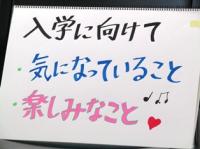 入学に向けて
・気になっていること
・楽しみなこと